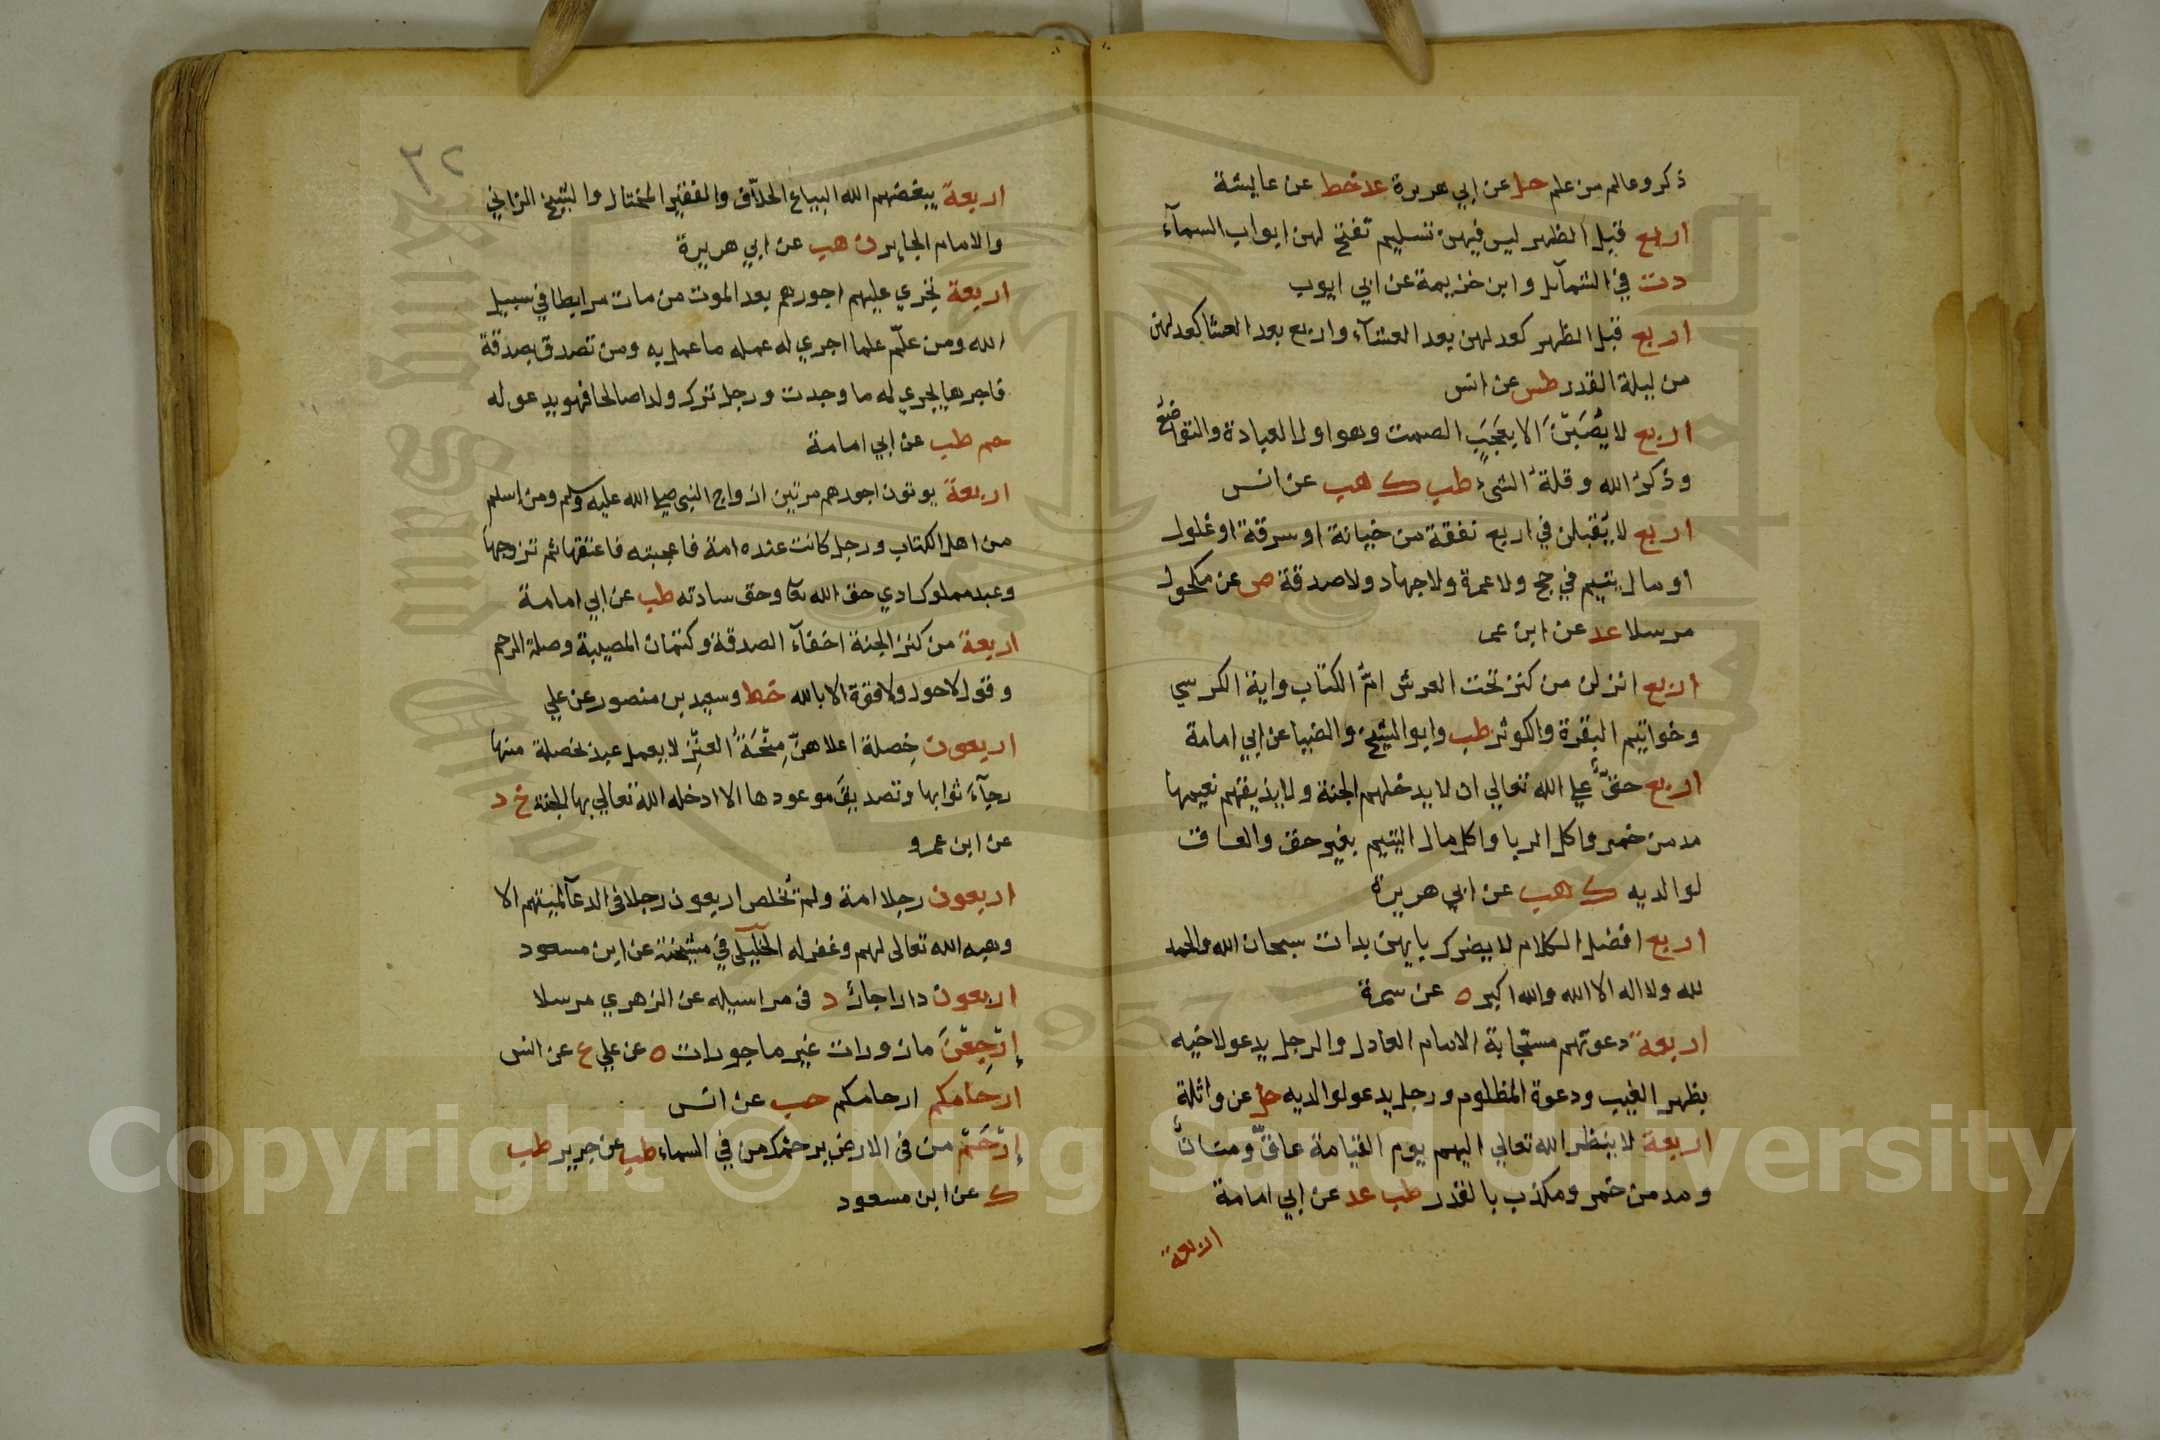 ذكر وعالم من علم حل عن ابي هريرة عد خط عن عايشة
اربع قبل الظهر ليس فيهن تسليم تفتح لهن ابواب السمآء
دت في الشمآيل وابن خزيمة عن ابي ايوب
اربع قبل الظهر كعدلهن بعد العشآء واربع بعد العشا كعدلهن
من ليلة القدر طس عن انس
اربع لا يُصَبْنَ الا بعَجَبٍ الصمت وهو اول العبادة والتواضعُ
وذكرُ الله وقلةُ الشيء طب ك هب عن انس
اربع لا يُقبلن في اربع نفقة من خيانة او سرقة او غلول
او مال يتيم في حج ولا عمرة ولا جهاد ولا صدقة ص عن مكحول
مرسلا عد عن ابن عمر
اربع انزلن من كنز تحت العرش امُّ الكتاب واية الكرسي
وخواتيم البقرة والكوثر طب وابو الشيخ والضيا عن ابي امامة
اربع حقٌّ علي الله تعالي ان لا يدخلهم الجنة ولا يذيقهم نعيمها
مدمن خمر واكل الربا واكل مال اليتيم بغير حق والعاق
لوالديه ك هب عن ابي هريرة
اربع افضل الكلام لا يضرك بايهن بدات سبحان الله والحمد
لله ولا اله الا الله والله اكبر ه عن سمرة
اربعة دعوتهم مستجابة الامام العادل والرجل يدعو لاخيه
بظهر الغيب ودعوة المظلوم ورجل يدعو لوالديه حل عن واثلة
اربعة لا ينظر الله تعالي اليهم يوم القيامة عاقٌّ ومنانٌ
ومدمن خمر ومكذب بالقدر طب عد عن ابي امامة
اربعة
٣٢
اربعة يبغضهم الله البياع الحلاّف والفقير المختال والشيخ الزاني
والامام الجاير ن هب عن ابي هريرة
اربعة تجري عليهم اجورهم بعد الموت من مات مرابطا في سبيل
الله ومن علّم علما اجري له عمله ما عمل به ومن تصدق بصدقة
فاجرها يجري له ما وجدت ورجل ترك ولدا صالحا فهو يدعو له
حم طب عن ابي امامة
اربعة يوتون اجورهم مرتين ازواج النبي صلي الله عليه وسلم ومن اسلم
من اهل الكتاب ورجل كانت عنده امة فاعجبته فاعتقها ثم تزوجها
وعبد مملوك ادي حق الله تعا وحق سادته طب عن ابي امامة
اربعة من كنز الجنة اخفآء الصدقة وكتمان المصيبة وصلة الرحم
وقول لا حول ولا قوة الا بالله خط وسعيد بن منصور عن علي
اربعون خِصلة اعلاهنّ مِنْحَةُ العنْزِ لا يعمل عبد بخصلة منها
رجآءَ ثوابها وتصديقَ موعودها الا ادخله الله تعالي بها الجنة خ د
عن ابن عمرو
اربعون رجلا امة ولم تُخلص اربعون رجلا في الدعآ لميتهم الا
وهبه الله تعالى لهم وغفر له الخليلي في مشيخته عن ابن مسعود
اربعون دارا جارٌ د في مراسيله عن الزهري مرسلا
إرْجِعْنَ مازورات غير ماجورات ه عن علي ع عن انس
ارحامكم ارحامكم حب عن انس
إرْحَمْ من في الارض يرحمْك من في السماء طب عن جرير طب
ك عن ابن مسعود
Copyright © King Saud University
1957